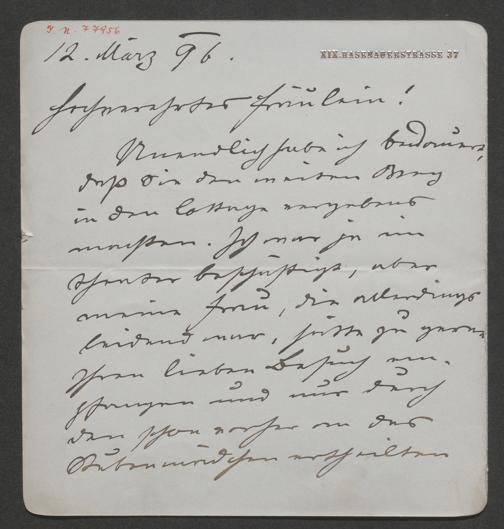 I. N. 77956
12. März 96.
XIX. HASENAUERSTRASSE 37
Hochverehrtes Fräulein!
Unendlich habe ich bedauert,
daß Sie den weiten Weg
in den Cottage vergebens
machten. Ich war ja im
Theater beschäftigt, aber
meine Frau, die allerdings
leidend war, hätte zu gerne
Ihren lieben Besuch em-
pfangen und nur durch
den schon vorher an das
Stubenmädchen ertheilten